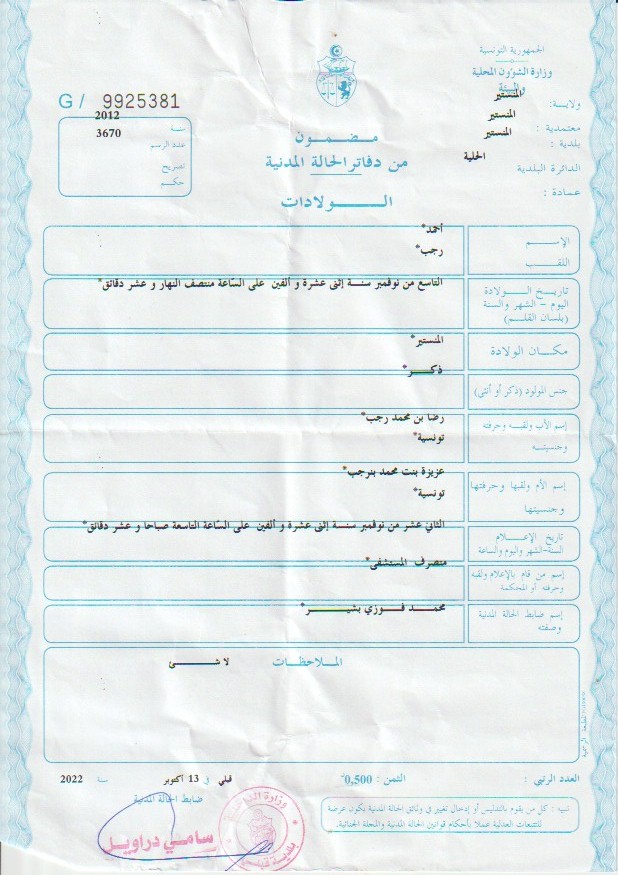 الجمهورية التونسية
وزارة الشؤون المحلية
والبيئة
ولاية: المنستير
معتمدية : المنستير
بلدية : المنستير
الدائرة البلدية الحلية
عمادة :
G / 9925381
سنة 2012
عدد الرسم 3670
تصريح
حكم
مضمون
من دفاتر الحالة المدنية
الولادات
الإسم أحمد*
اللقب رجب*
تاريخ الولادة
اليوم - الشهر والسنة
(بلسان القلم)
التاسع من نوفمبر سنة إثنى عشرة و ألفين على الساعة منتصف النهار و عشر دقائق*
مكان الولادة المنستير*
جنس المولود (ذكر أو أنثى) ذكر*
إسم الأب ولقبه وحرفته رضا بن محمد رجب*
وجنسيته تونسية*
إسم الأم ولقبها وحرفتها عزيزة بنت محمد بنرجب*
وجنسيتها تونسية*
تاريخ الإعلام
السنة-الشهر واليوم والساعة
الثاني عشر من نوفمبر سنة إثنى عشرة و ألفين على الساعة التاسعة صباحا و عشر دقائق*
إسم من قام بالإعلام ولقبه
وحرفته أو المحكمة
متصرف المستشفى*
إسم ضابط الحالة المدنية
وصفته
محمد فوزي بشير*
الملاحظات لا شئ
المطبعة الرسمية
العدد الرتبي : الثمن : 0,500 قبلي في 13 أكتوبر سنة 2022
ضابط الحالة المدنية
تنبيه : كل من يقوم بالتدليس أو إدخال تغيير في وثائق الحالة المدنية يكون عرضة
للتتبعات العدلية عملا بأحكام قوانين الحالة المدنية والمجلة الجنائية.
سامي دراويل
وزارة الداخلية
بلدية قبلي